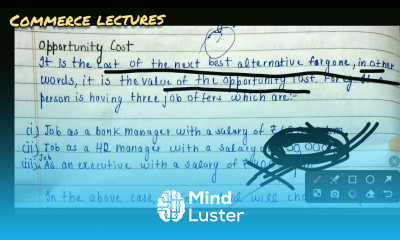 COMMERCE LECTURES
Opportunity Cost
It is the cost of the next best alternative forgone, in other
words, it is the value of the opportunity lost. For eg
person is having three job offers which are:-
(i) Job as a bank manager with a salary of ₹
(ii) Job as a HR manager with a salary
(iii) Job As an executive with a salary of ₹
In the above case will
Mind
Luster